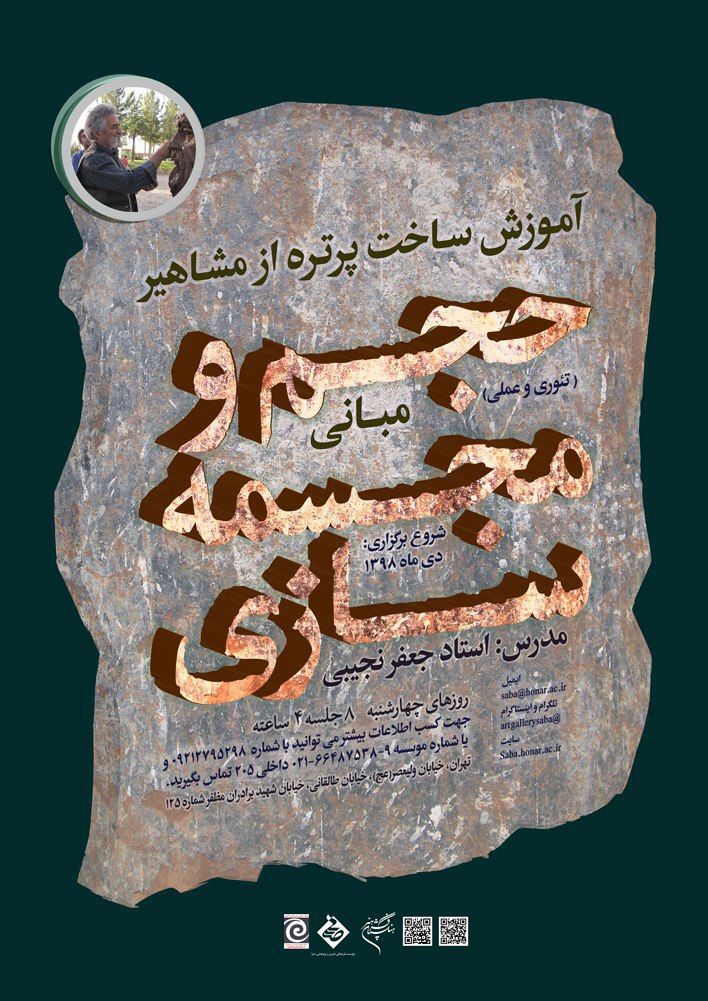 آموزش ساخت پرتره از مشاهیر
حجم و
(تئوری و عملی)
مبانی
مجسمه
شروع برگزاری:
دی ماه ۱۳۹۸
سازی
مدرس: استاد جعفر نجیبی
روزهای چهارشنبه ۸ جلسه ۴ ساعته
جهت کسب اطلاعات بیشتر می توانید با شماره ۰۹۲۱۲۷۹۵۲۹۸ و
یا شماره موسسه ۹-۶۶۴۸۷۵۳۸-۰۲۱ داخلی ۲۰۵ تماس بگیرید.
تهران، خیابان ولیعصر(عج)، خیابان طالقانی، خیابان شهید برادران مظفر شماره ۱۲۵
ایمیل
saba@honar.ac.ir
تلگرام و اینستاگرام
artgallerysaba@
سایت
Saba.honar.ac.ir
موسسه فرهنگی هنری و پژوهشی صبا